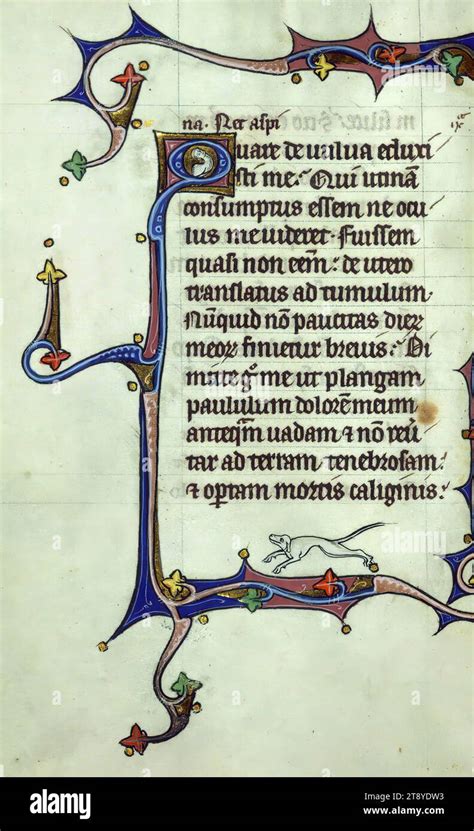 na. Nec aspi
Quare de uulua eduxi
sti me. Qui utinā
consumptus essem ne ocu
lus me uideret. Fuissem
quasi non eēm: de utero
translatus ad tumulum.
Nūquid nō paucitas dierꝝ
meoꝝ finietur breuis: Di
mitte gͦ me ut plangam
paululum dolorēmeum
anteqͣm uadam & nō reū
tar ad terram tenebrosam:
& optam mortis caliginis:
alamy
Image ID: 2T8YDW3
www.alamy.com